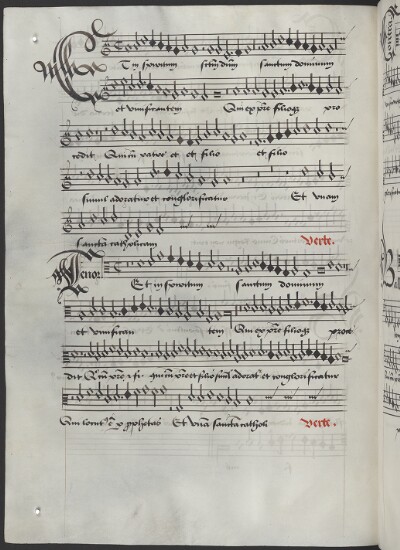 Et in spiritum sanctum dominum
et vivificantem Qui ex patre filioque pro
cedit Qui cum patre et et filio et filio
simul adoratur et conglorificatur Et unam
sancta catholicam verte.
Tenor Et in spiritum sanctum dominum
et vivifican tem Qui ex patre filioque proce
dit Qui cum patre et filio simul adorat et conglorificatur
Qui locut est per prophetas Et una sancta catholi verte.